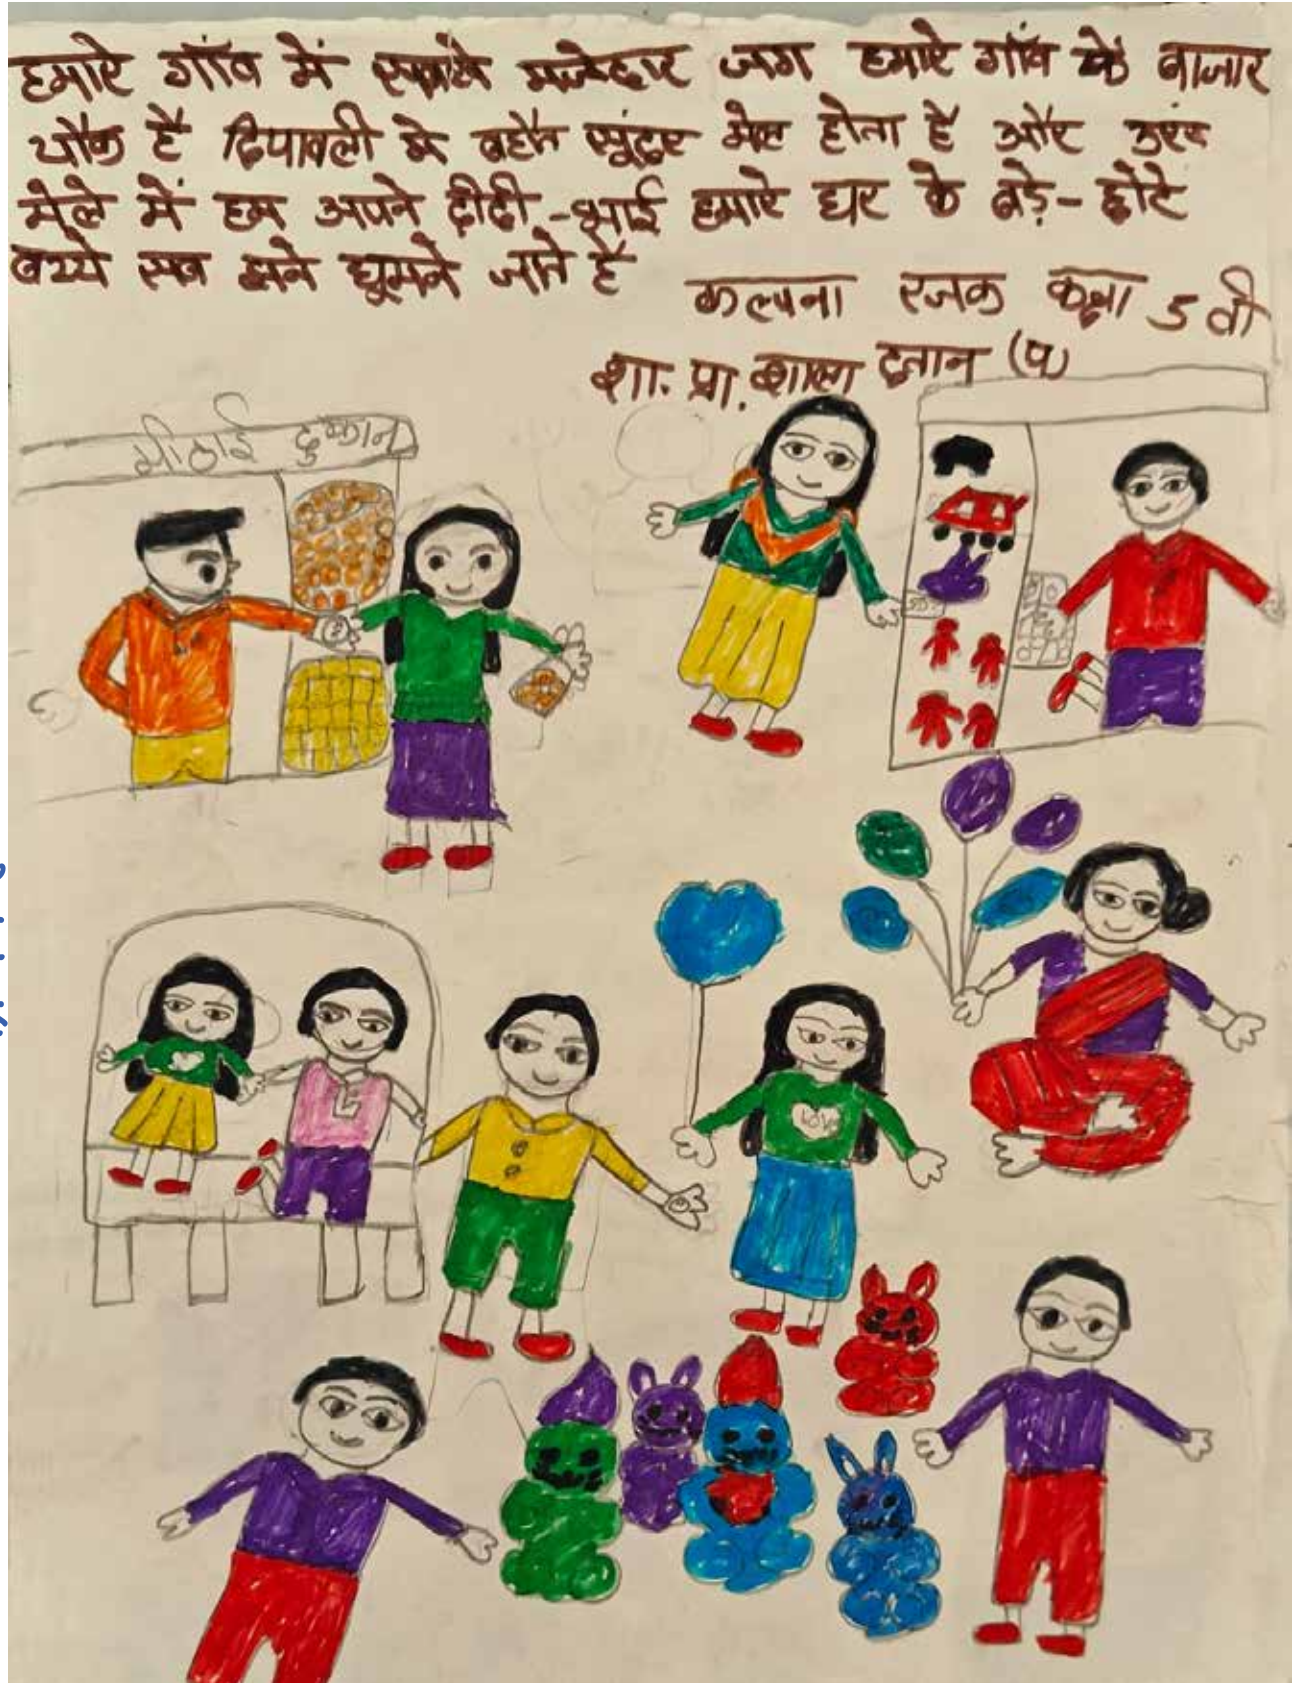 हमारे गाँव में सबसे मजेदार जग हमारे गाँव के बाजार
चौक है दिपावली मे बहोत सुंदर मेल होता है और उस
मेले में हम अपने दीदी-भाई हमारे घर के बड़े-छोटे
बच्चे सब झने घुमने जाते है
कल्पना रजक कक्षा 5 वी
शा. प्रा. शाला दतान (प)
मीठाई दुकान
LOVE